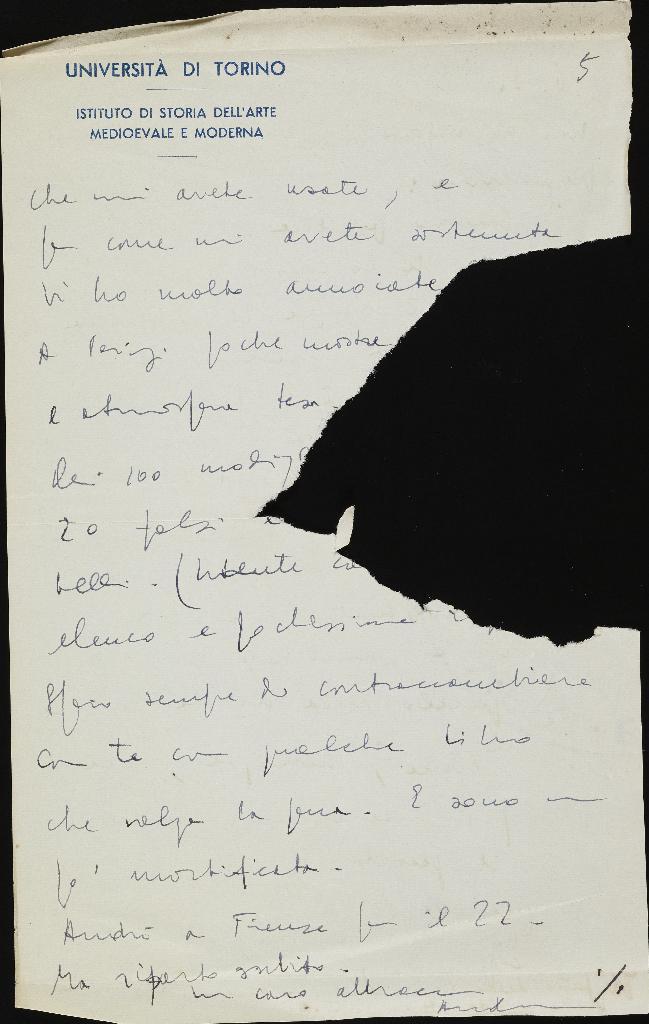 UNIVERSITÀ DI TORINO
ISTITUTO DI STORIA DELL'ARTE
MEDIOEVALE E MODERNA
5
che mi avete usate, e
per come mi avete sostenuta
Vi ho molto annoiate
A Parigi poche mostre
e atmosfera tesa.
Dei 100 modig
20 falsi e
belli. (Niente ca
elenco e pochissime
Spero sempre di contraccambiare
con te con qualche libro
che valga la pena. E sono un
po' mortificata.
Andrò a Firenze per il 22 -
Ma riparto subito.
un caro abbraccio
./.